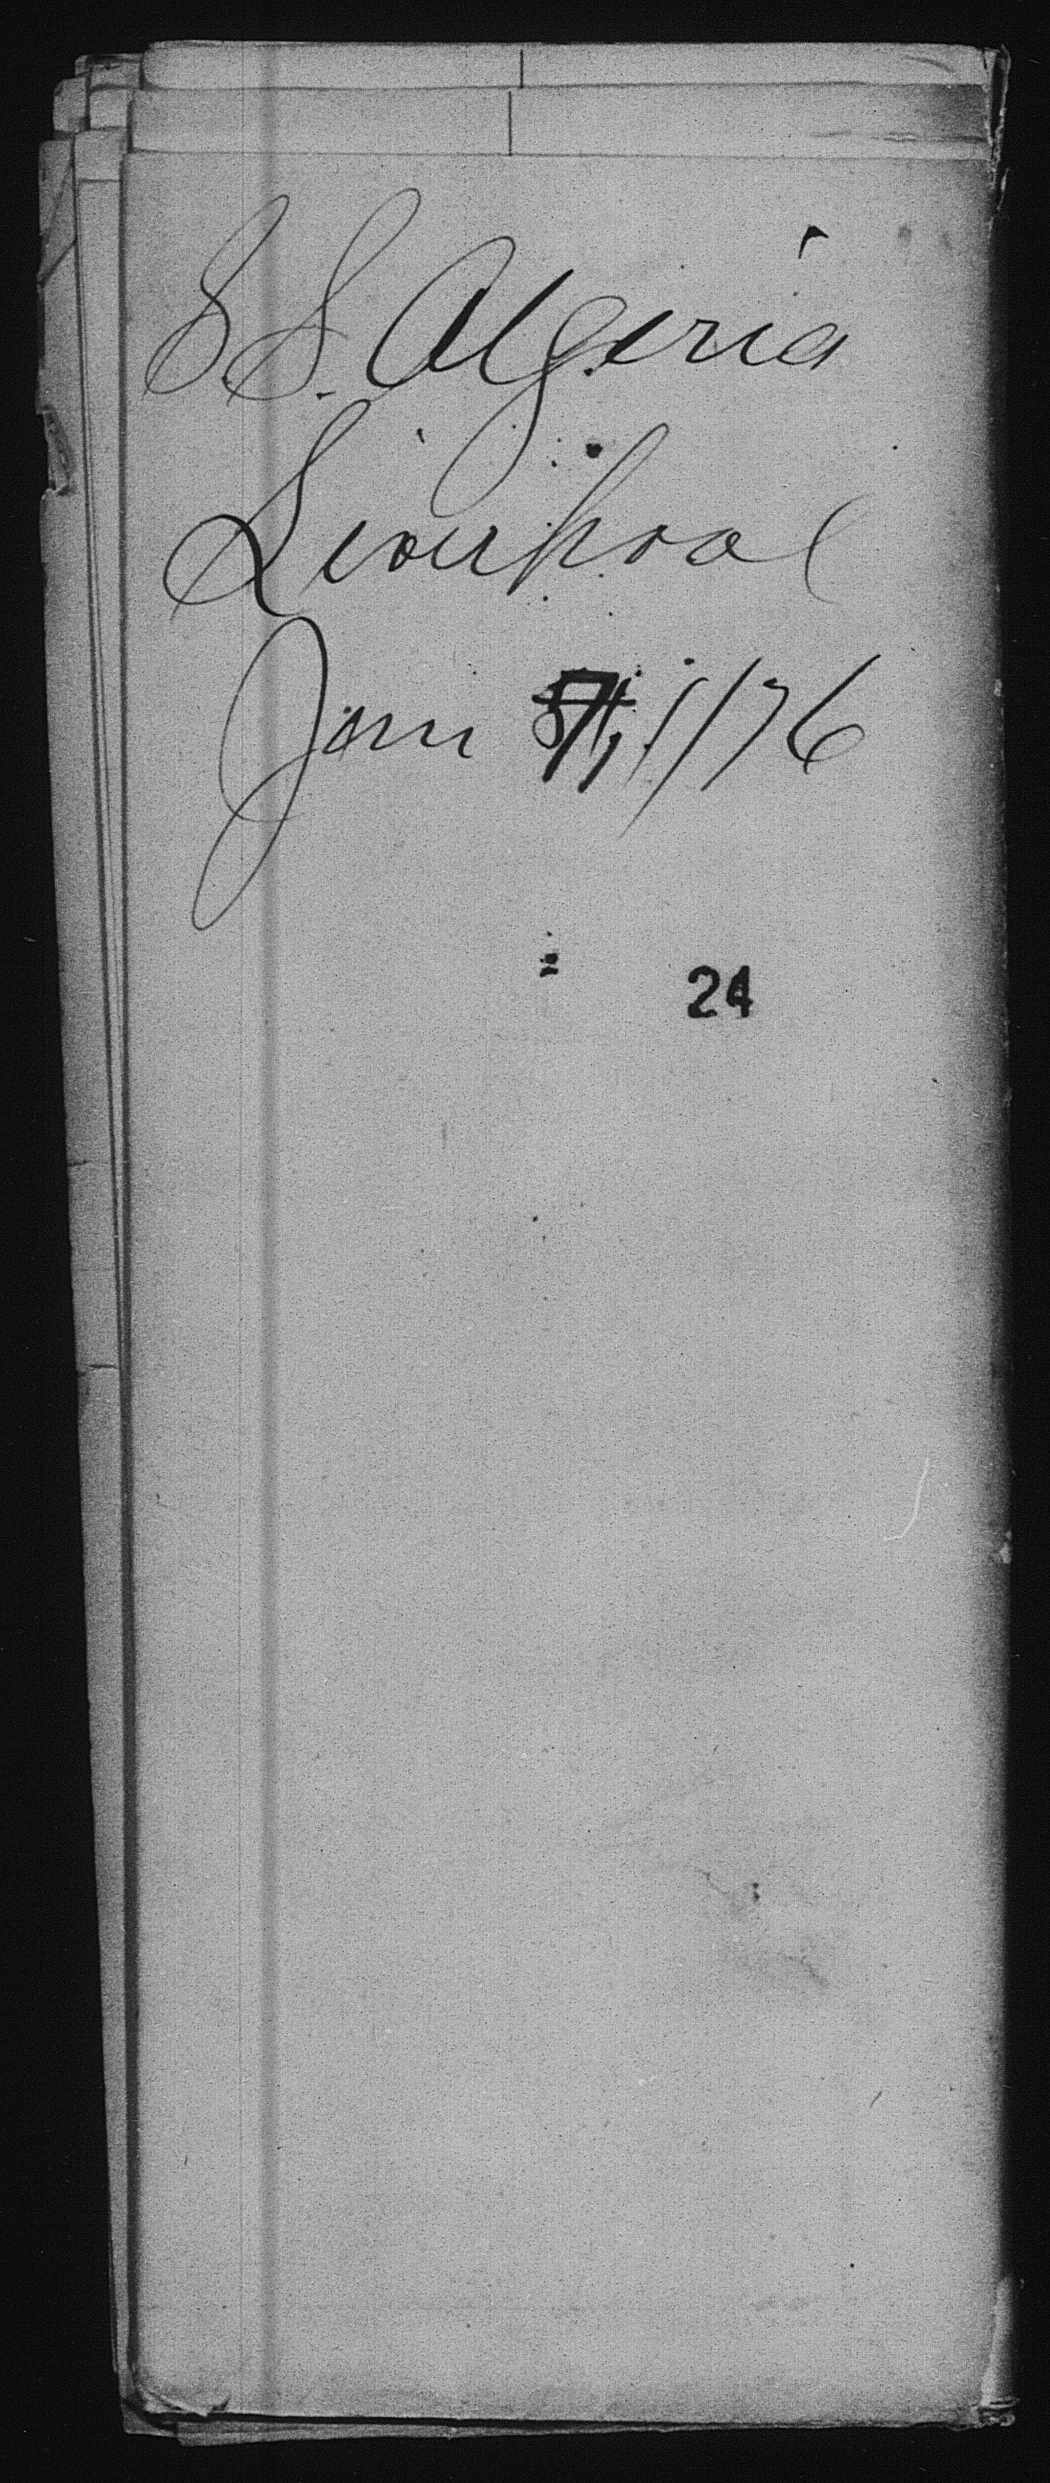 S.S. Algeria
Liverpool
Jany 7, 1/76
24